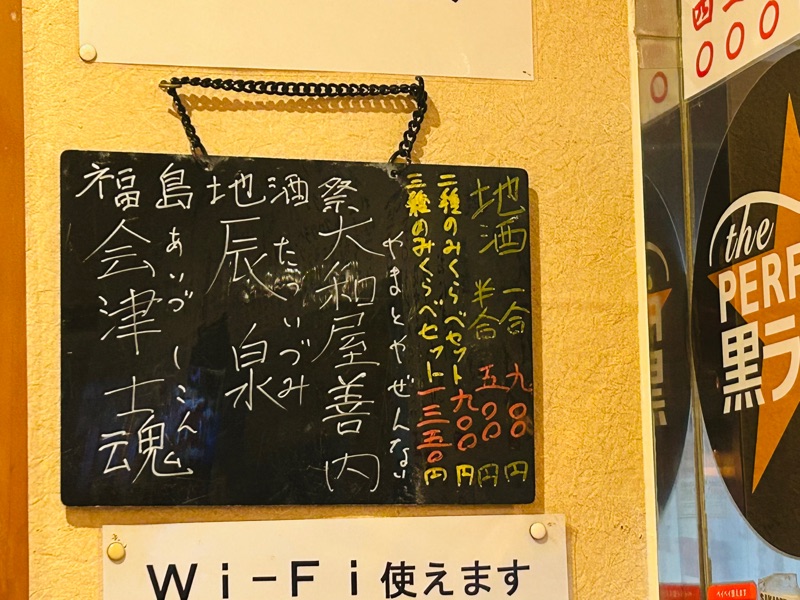 地酒 一合 九〇〇円
半合 五〇〇円
二種のみくらべセット 九〇〇円
三種のみくらべセット 一三五〇円
福島地酒祭
やまとやぜんない
大和屋善内
たついづみ
辰泉
あいづしこん
会津士魂
Wi-Fi使えます
the
PERF
黒ラ